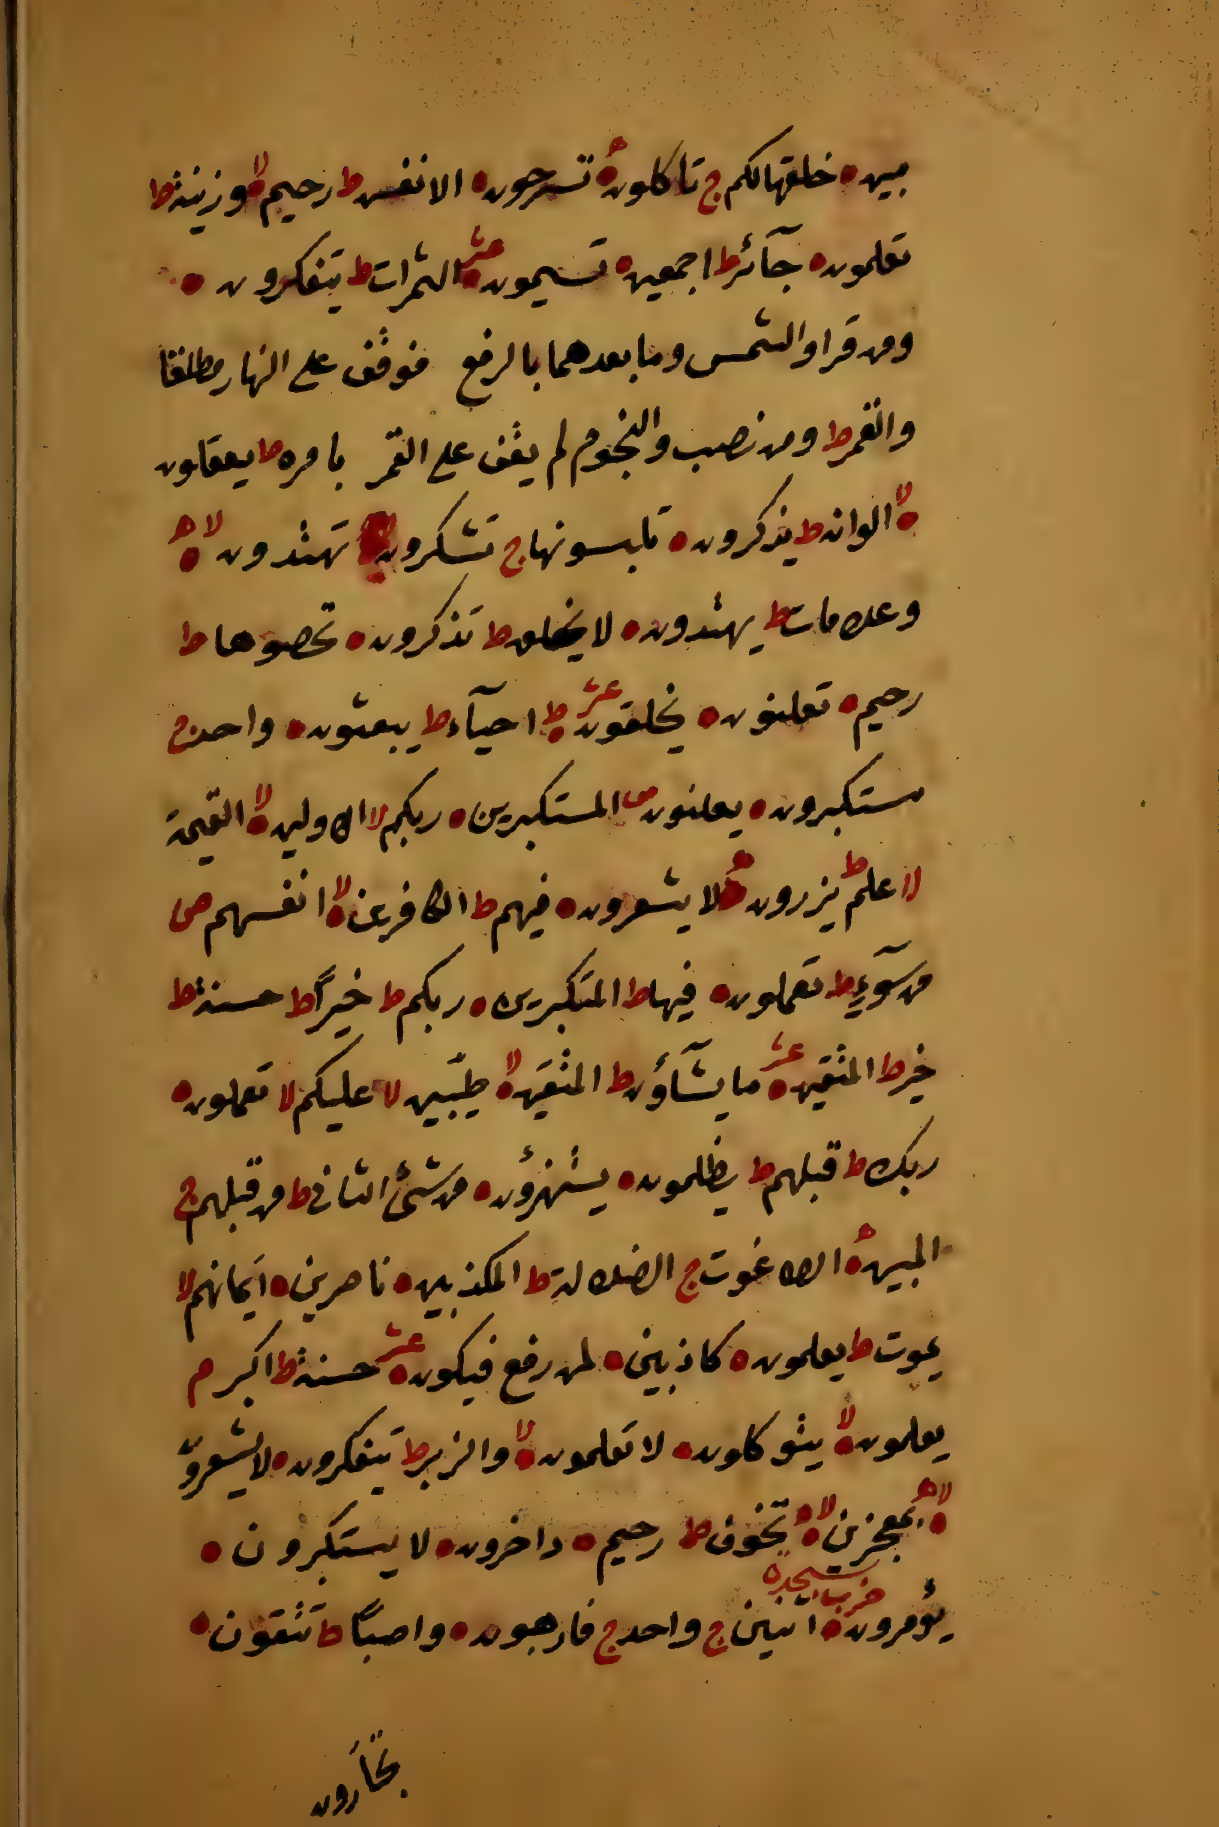 مبين ه خلقها لكم ج تاكلون ه تسرحون ه الانفس ط رحيم ه لا وزينة ط
تعلمون ه جآئر ط اجمعين ه تسيمون ه عشر الثمرات ط يتفكرون ه
ومن قرا والشمس وما بعدهما بالرفع فوقف على النهار مطلقا
والقمر ط ومن نصب والنجوم لم يقف على القمر بامره ط يعقلون
ه لا الوانه ط يذكرون ه تلبسونها ج تشكرون تهتدون ه لا
وعلامات ط يهتدون ه لا يخلق ط تذكرون ه تحصوها ط
رحيم ه تعلنون ه يخلقون ط عشر احيآء ط يبعثون ه واحد ج
مستكبرون ه يعلنون ط المستكبرين ه ربكم لا الاولين ه لا القيمة
لا علم ط يزرون ه لا يشعرون ه فيهم ط الكافرين ه لا انفسهم ص
من سوٓء ط تعملون ه فيها ط المتكبرين ه ربكم ط خيرًا ط حسنة ط
خير ط المتقين ه عشر ما يشآؤن ط المتقين ه لا طيّبين لا عليكم لا تعملون ه
ربك ط قبلهم ط يظلمون ه يستهزؤن ه من شئ الثانى ط من قبلهم ج
المبين ه الطاغوت ج الضلالة ط المكذبين ه ناصرين ه ايمانهم لا
يموت ط يعلمون ه كاذبين ه لمن رفع فيكون ه عشر حسنة ط اكبر م
يعلمون ه لا يتوكلون ه لا تعلمون ه لا والزبر ط يتفكرون ه لا يشعرون
ه لا بمعجزين ه لا تخوف ط رحيم ه داخرون ه لا يستكبرون ه
يؤمرون ه حزب سجدة اثنين ج واحد ج فارهبون ه واصبًا ط تتقون ه
تجأرون